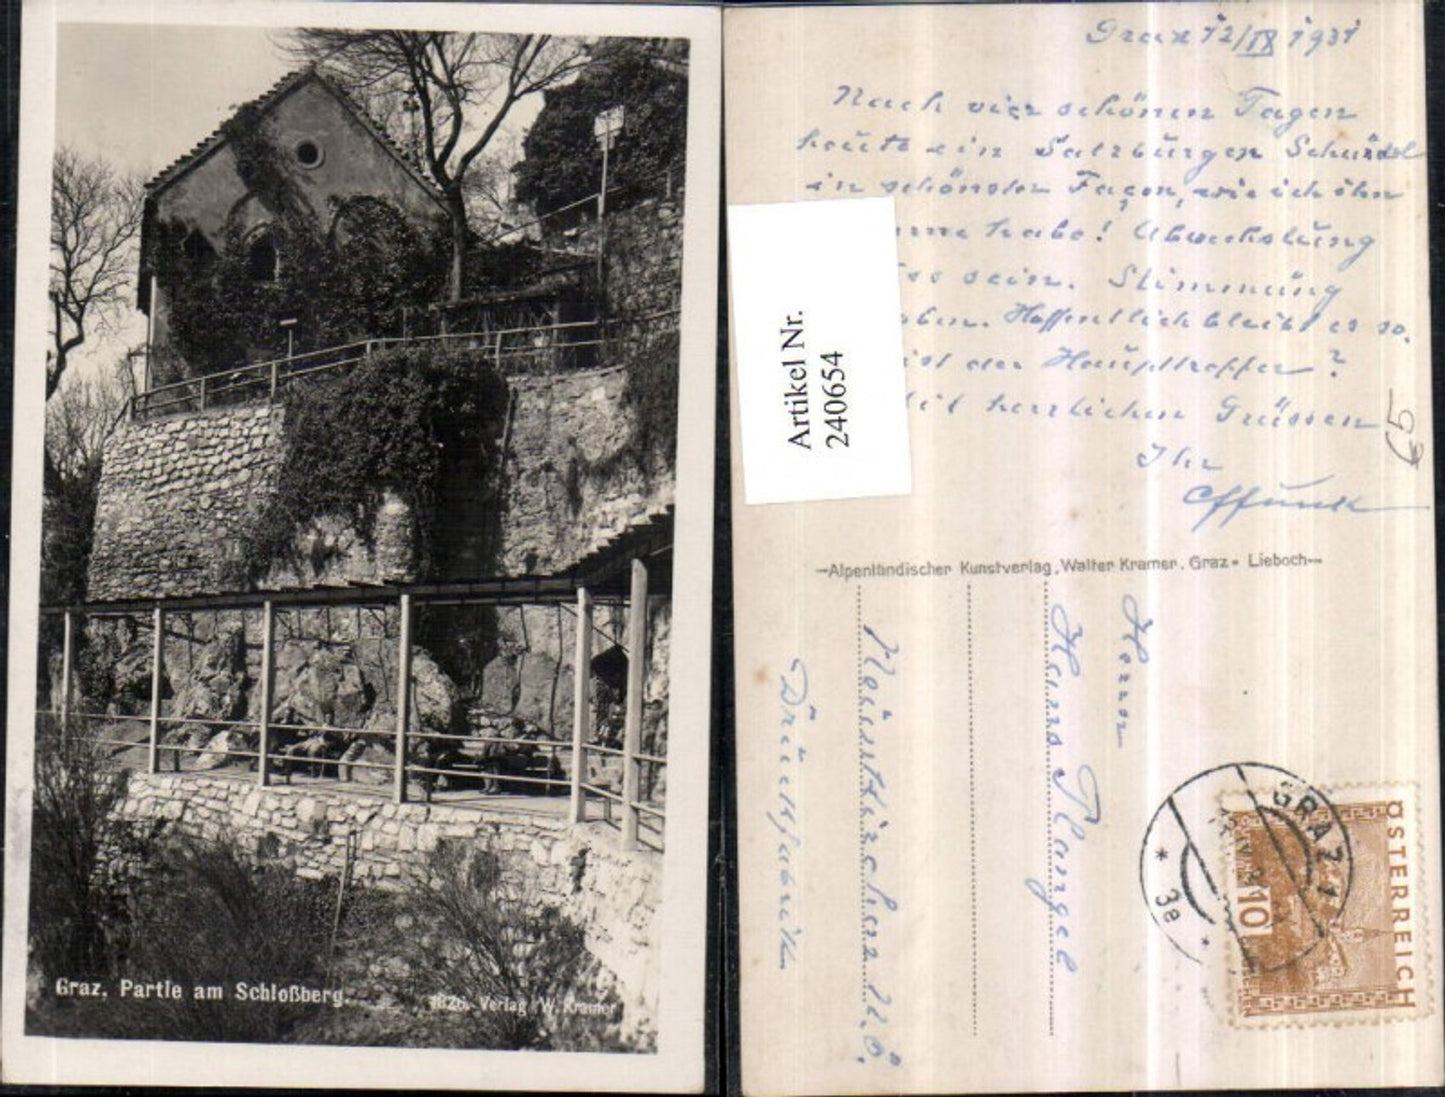 Graz, Partie am Schloßberg.
1826. Verlag W. Kramer
Graz 12/IX 1931
Nach vier schönen Tagen
heute ein Salzburger Schnürdl
in schönster Façon, wie ich ihn
habe! Abwechslung
sein. Stimmung
oben. Hoffentlich bleibt es so.
ist der Haupttreffer?
herzlichen Grüssen
Ihr
Artikel Nr.
240654
65
Alpenländischer Kunstverlag, Walter Kramer, Graz - Lieboch
Herrn
Hans Plangel
Neunkirchen N.Ö.
Druckfabrik
GRAZ 1
* 3e *
ÖSTERREICH
10 GROSCHEN